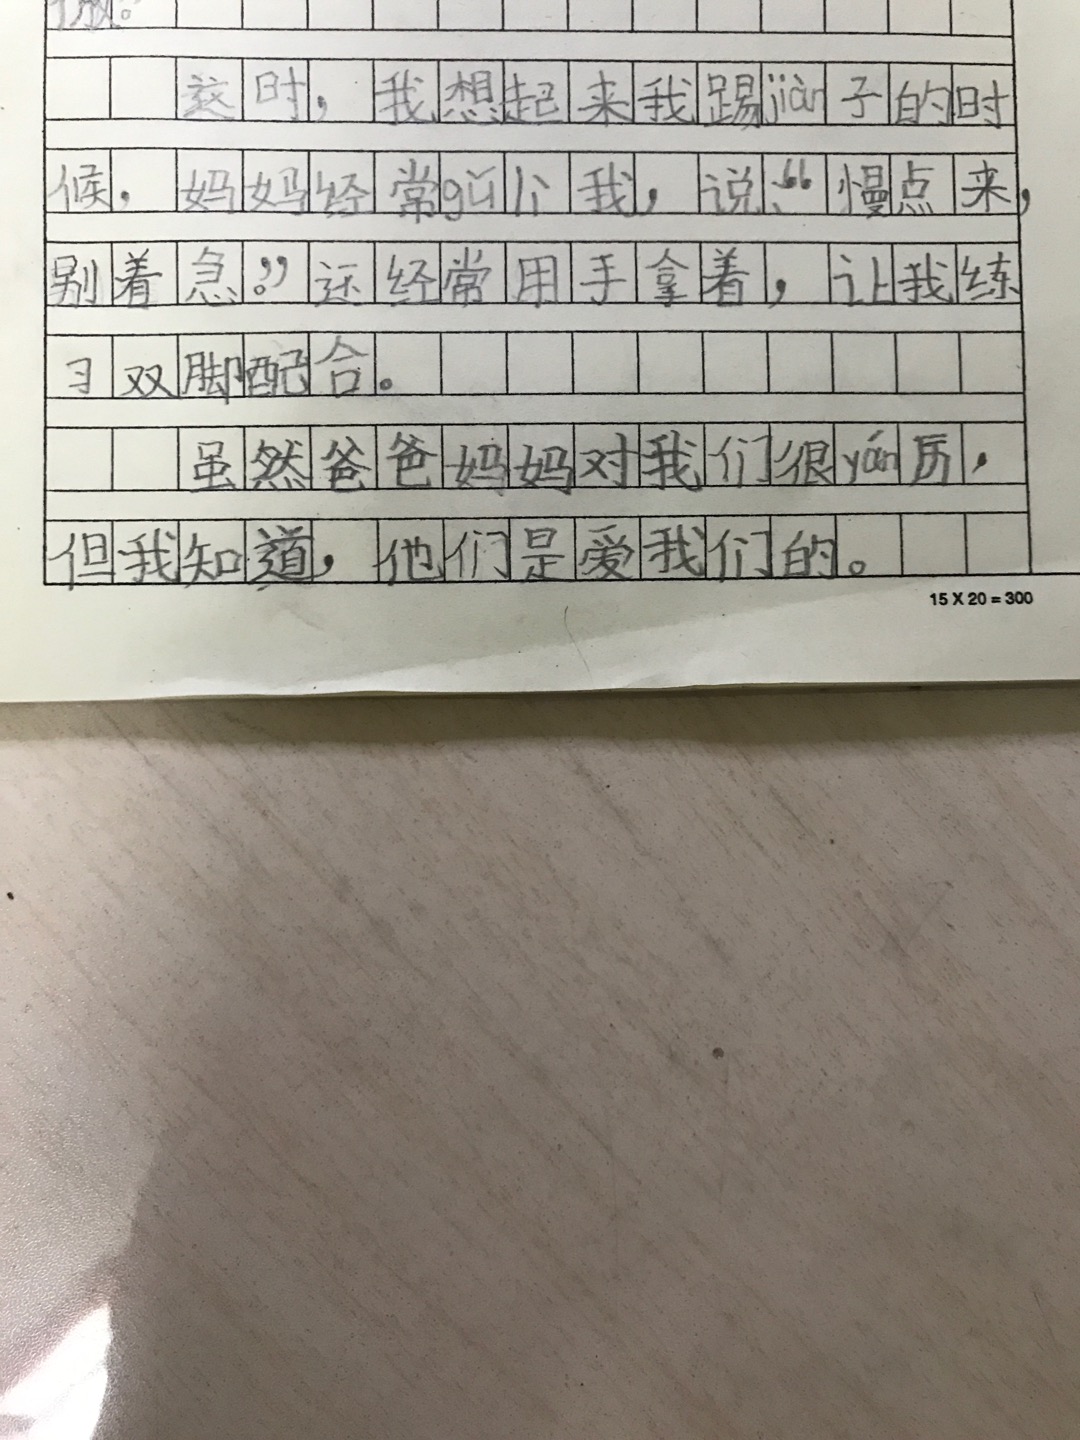 这时，我想起来我踢jiàn子的时
候，妈妈经常gǔ li 我，说：“慢点来，
别着急。”还经常用手拿着，让我练
习双脚配合。
虽然爸爸妈妈对我们很yán厉，
但我知道，他们是爱我们的。
15 X 20 = 300